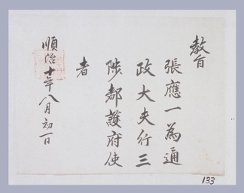 教旨
張應一為通
政大夫行三
陟都護府使
者
順治十年八月初一日
133